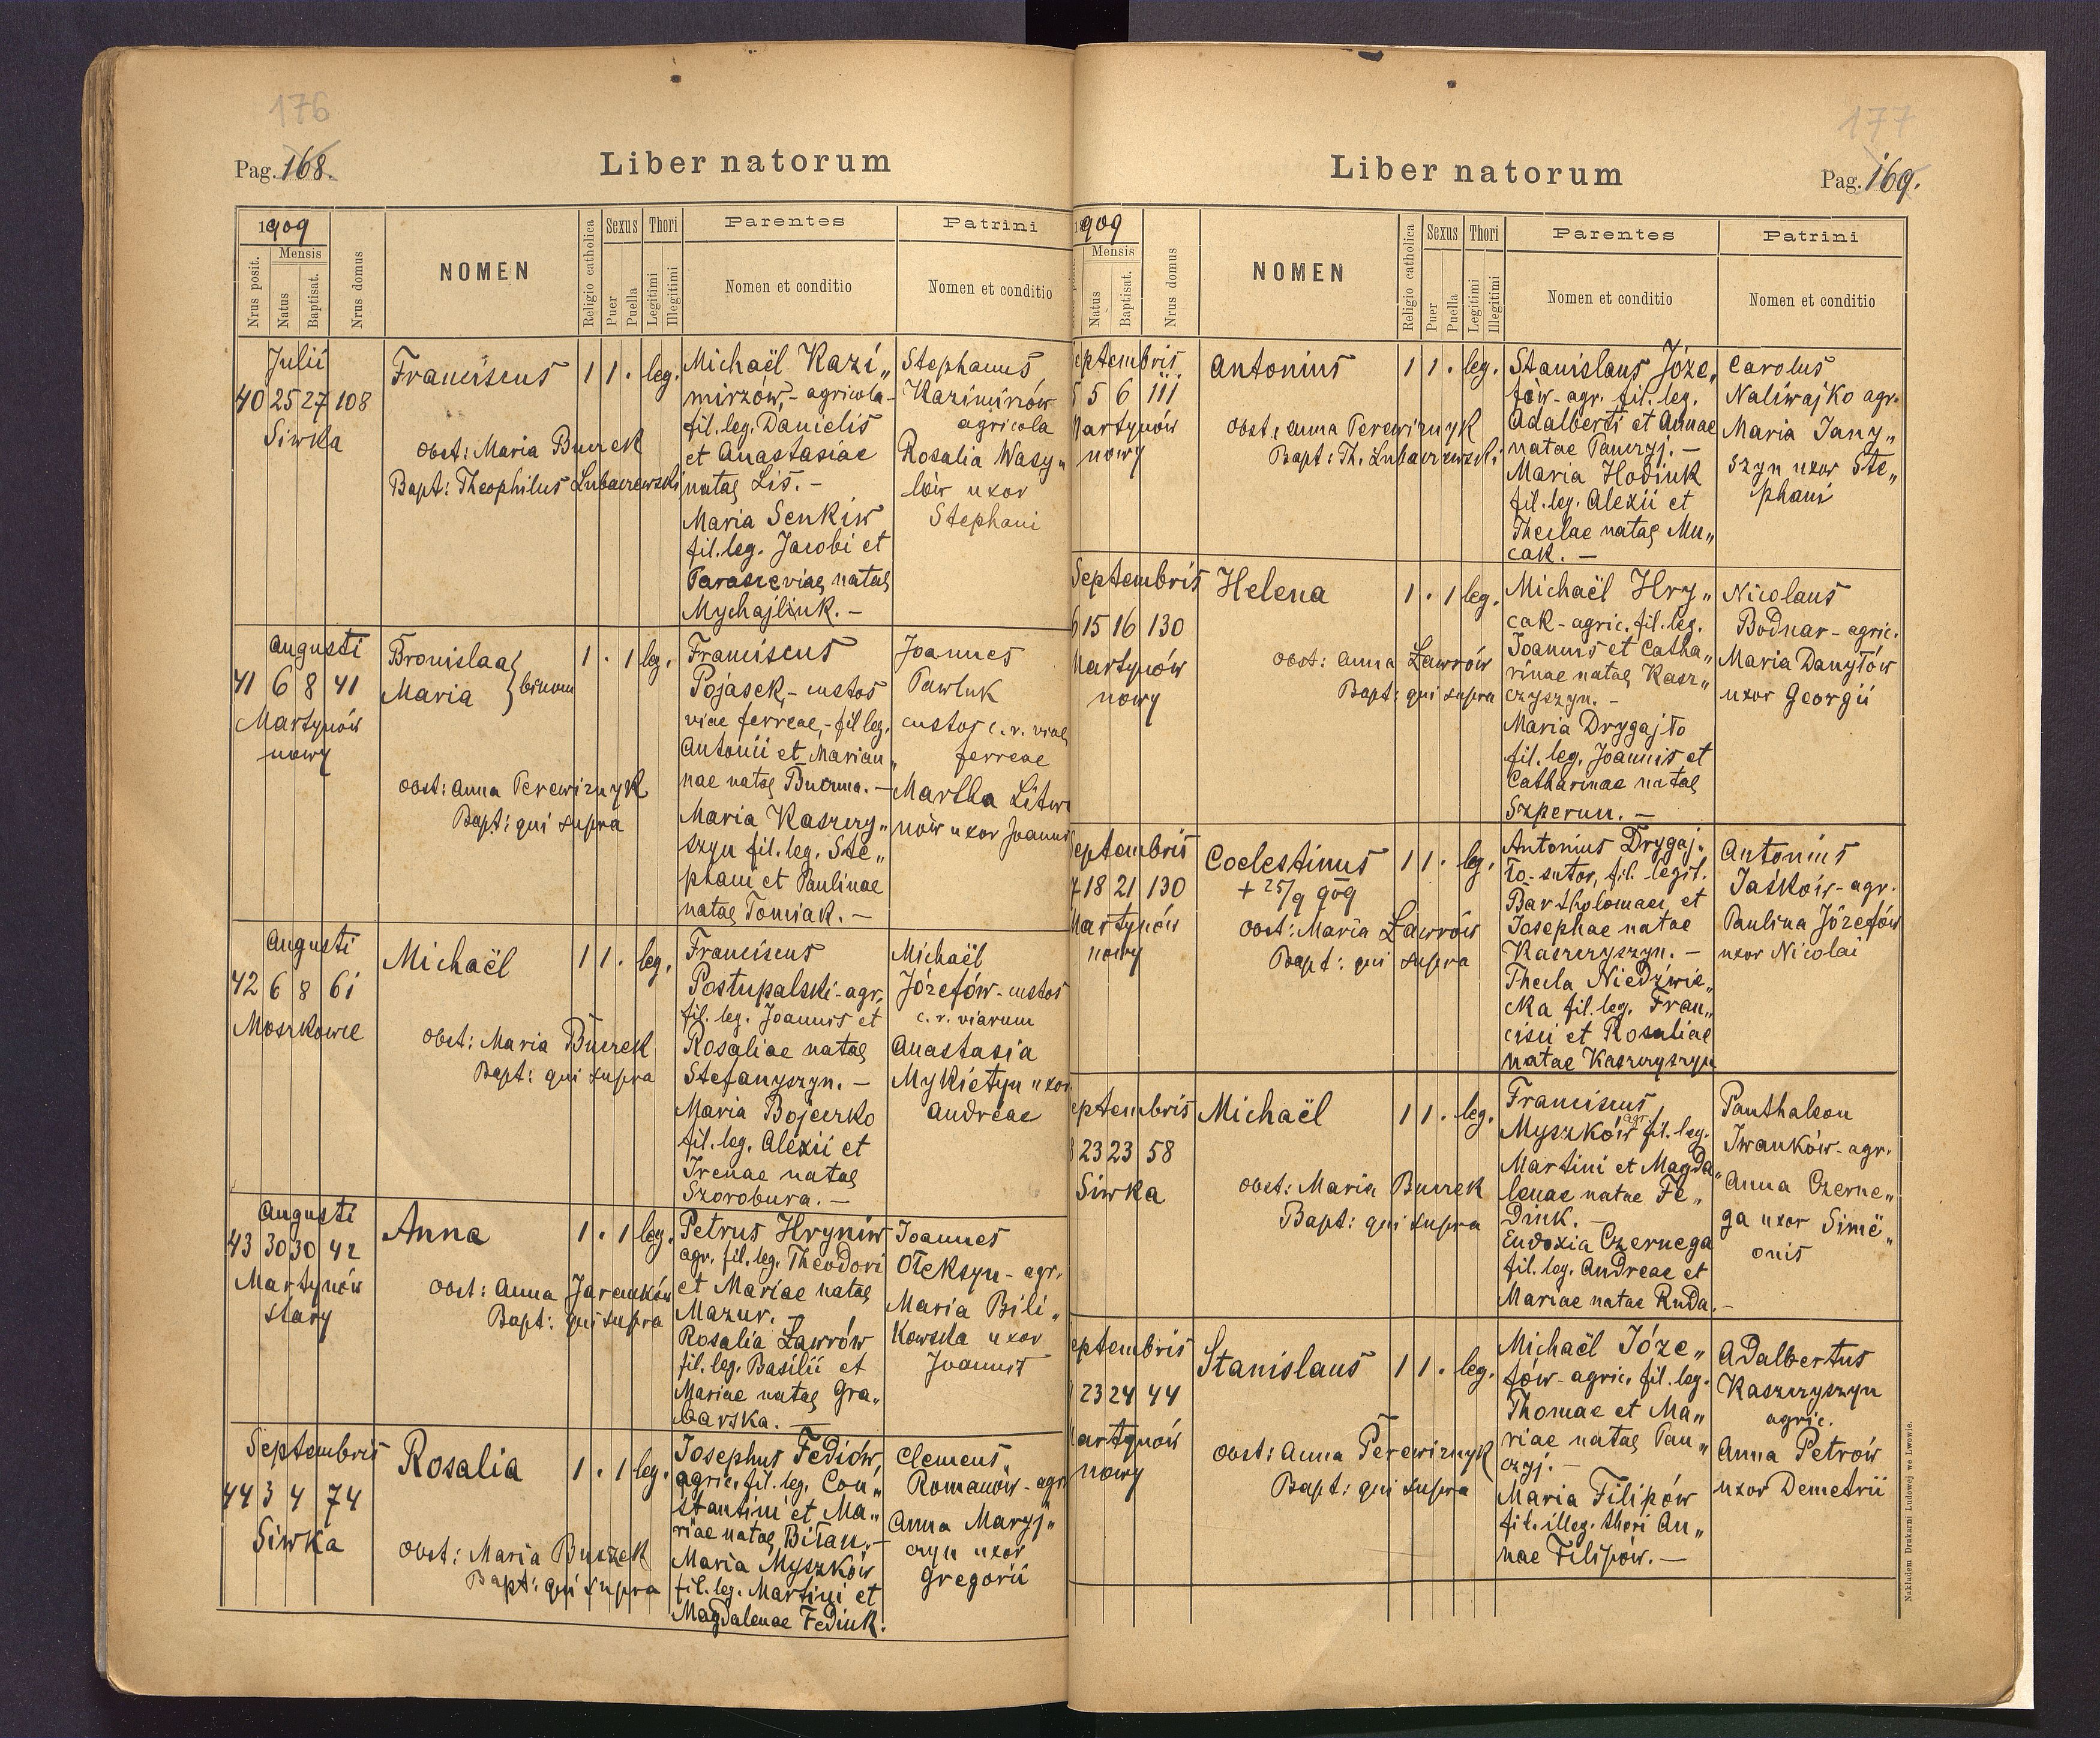 176
Pag. 168.
Liber natorum
1909
Mensis
Nrus posit.
Natus
Baptisat.
Nrus domus
NOMEN
Religio catholica
Sexus
Puer
Puella
Thori
Legitimi
Illegitimi
Parentes
Nomen et conditio
Patrini
Nomen et conditio
Julii
40 25 27 108
Siwka
Franciscus
1 1 . leg.
Obst: Maria Burek
Bapt: Theophilus Lubaczewski
Michaël Kazi„
mirzów, - agricola -
fil. leg. Danielis
et Anastasiae
natae Lis. -
Maria Senkiw
fil. leg. Jacobi et
Parasceviae natae
Mychajliuk. -
Stephanus
Kazimirów
agricola
Rosalia Wasy„
lów uxor
Stephani
Augusti
41 6 8 41
Martynów
nowy
Bronislaa
Maria } binom
1 . 1 leg.
Obst: Anna Perewiznyk
Bapt: qui supra
Franciscus
Pojasek - custos
viae ferreae, - fil leg.
Antonii et Marian„
nae natae Buczma. -
Maria Kaszczy„
szyn fil. leg. Ste„
phani et Paulinae
natae Tomiak. -
Joannes
Pawluk
custos c. r. viae
ferreae
Martha Litwi
nów uxor Joannis
Augusti
42 6 8 61
Moszkowce
Michaël
1 1 . leg.
Obst: Maria Burek
Bapt: qui supra
Franciscus
Postupalski - agr.
fil. leg. Joannis et
Rosaliae natae
Stefanyszyn. -
Maria Bojeczko
fil. leg. Alexii et
Irenae natae
Szorobura. -
Michaël
Józefów - custos
c. r. viarum
Anastasia
Mykietyn uxor
Andreae
Augusti
43 30 30 42
Martynów
stary
Anna
1 . 1 leg.
Obst: Anna Jarenków
Bapt: qui supra
Petrus Hryniw
agr. fil. leg. Theodori
et Mariae natae
Mazur. -
Rosalia Ławrów
fil. leg. Basilii et
Mariae natae Gra„
barska. -
Joannes
Ołeksyn - agr.
Maria Bili„
kowska uxor
Joannis
Septembris
44 3 4 74
Siwka
Rosalia
1 . 1 leg.
Obst: Maria Burek
Bapt: qui supra
Josephus Fediów,
agric. fil. leg. Con„
stantini et Ma„
riae natae Biłan. -
Maria Myszków
fil. leg. Martini et
Magdalenae Fediuk.
Clemens
Romanów - agr
Anna Maryj„
czyn uxor
Gregorii
177
Liber natorum
Pag. 169.
1909
Mensis
Natus
Baptisat.
Nrus domus
NOMEN
Religio catholica
Sexus
Puer
Puella
Thori
Legitimi
Illegitimi
Parentes
Nomen et conditio
Patrini
Nomen et conditio
eptembris
5 5 6 111
Martynów
nowy
Antonius
1 1 . leg.
Obst: Anna Perewiznyk
Bapt: Th. Lubaczewski
Stanislaus Józe„
fów - agr. fil. leg.
Adalberti et Annae
natae Panczyj. -
Maria Hodiuk
fil. leg. Alexii et
Theclae natae Mu„
cak. -
Carolus
Naliwajko agr.
Maria Jany„
szyn uxor Ste„
phani
Septembris
6 15 16 130
Martynów
nowy
Helena
1 . 1 leg.
Obst: Anna Ławrów
Bapt: qui supra
Michaël Hry„
cak - agric. fil. leg.
Joannis et Catha„
rinae natae Kasz„
czyszyn. -
Maria Drygajło
fil. leg. Joannis et
Catharinae natae
Szperun. -
Nicolaus
Bodnar - agric.
Maria Danyłów
uxor Georgii
eptembris
7 18 21 130
Martynów
nowy
Coelestinus
+ 25/9 909
1 1 . leg.
Obst: Maria Ławrów
Bapt: qui supra
Antonius Drygaj„
ło - sutor, fil. legit.
Bartholomaei et
Josephae natae
Kaszczyszyn. -
Thecla Niedźwie„
cka fil. leg. Fran„
cisci et Rosaliae
natae Kaszczyszyn
Antonius
Jaśków - agr.
Paulina Józefów
uxor Nicolai
eptembris
8 23 23 58
Siwka
Michaël
1 1 . leg.
Obst: Maria Burek
Bapt: qui supra
Franciscus
Myszków agr. fil. leg.
Martini et Magda„
lenae natae Fe„
diuk. -
Eudoxia Czernega
fil. leg. Andreae et
Mariae natae Ruda. -
Panthaleon
Iwanków - agr.
Anna Czerne„
ga uxor Sime„
onis
eptembris
23 24 44
artynów
nowy
Stanislaus
1 1 . leg.
Obst: Anna Perewiznyk
Bapt: qui supra
Michaël Józe„
fów - agric. fil. leg.
Thomae et Ma„
riae natae Pan„
czyj. -
Maria Filipów
fil. illeg. thori An„
nae Filipów. -
Adalbertus
Kaszczyszyn
agric.
Anna Petrów
uxor Demetrii
Nakładem Drukarni Ludowej we Lwowie.